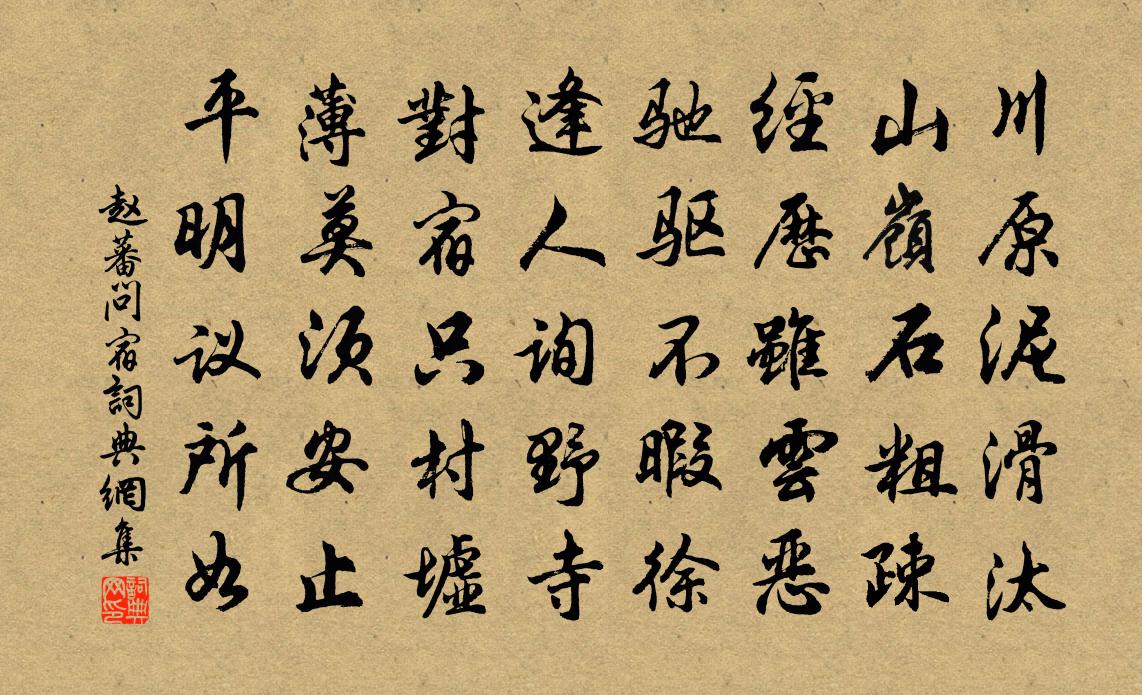 川原泥滑汰
山嶺石粗疎
經歷雖雲恶
驰驱不暇徐
逢人询野寺
對宿只村墟
薄莫须安止
平明议所如
赵蕃问宿詞典網集
詞典网印